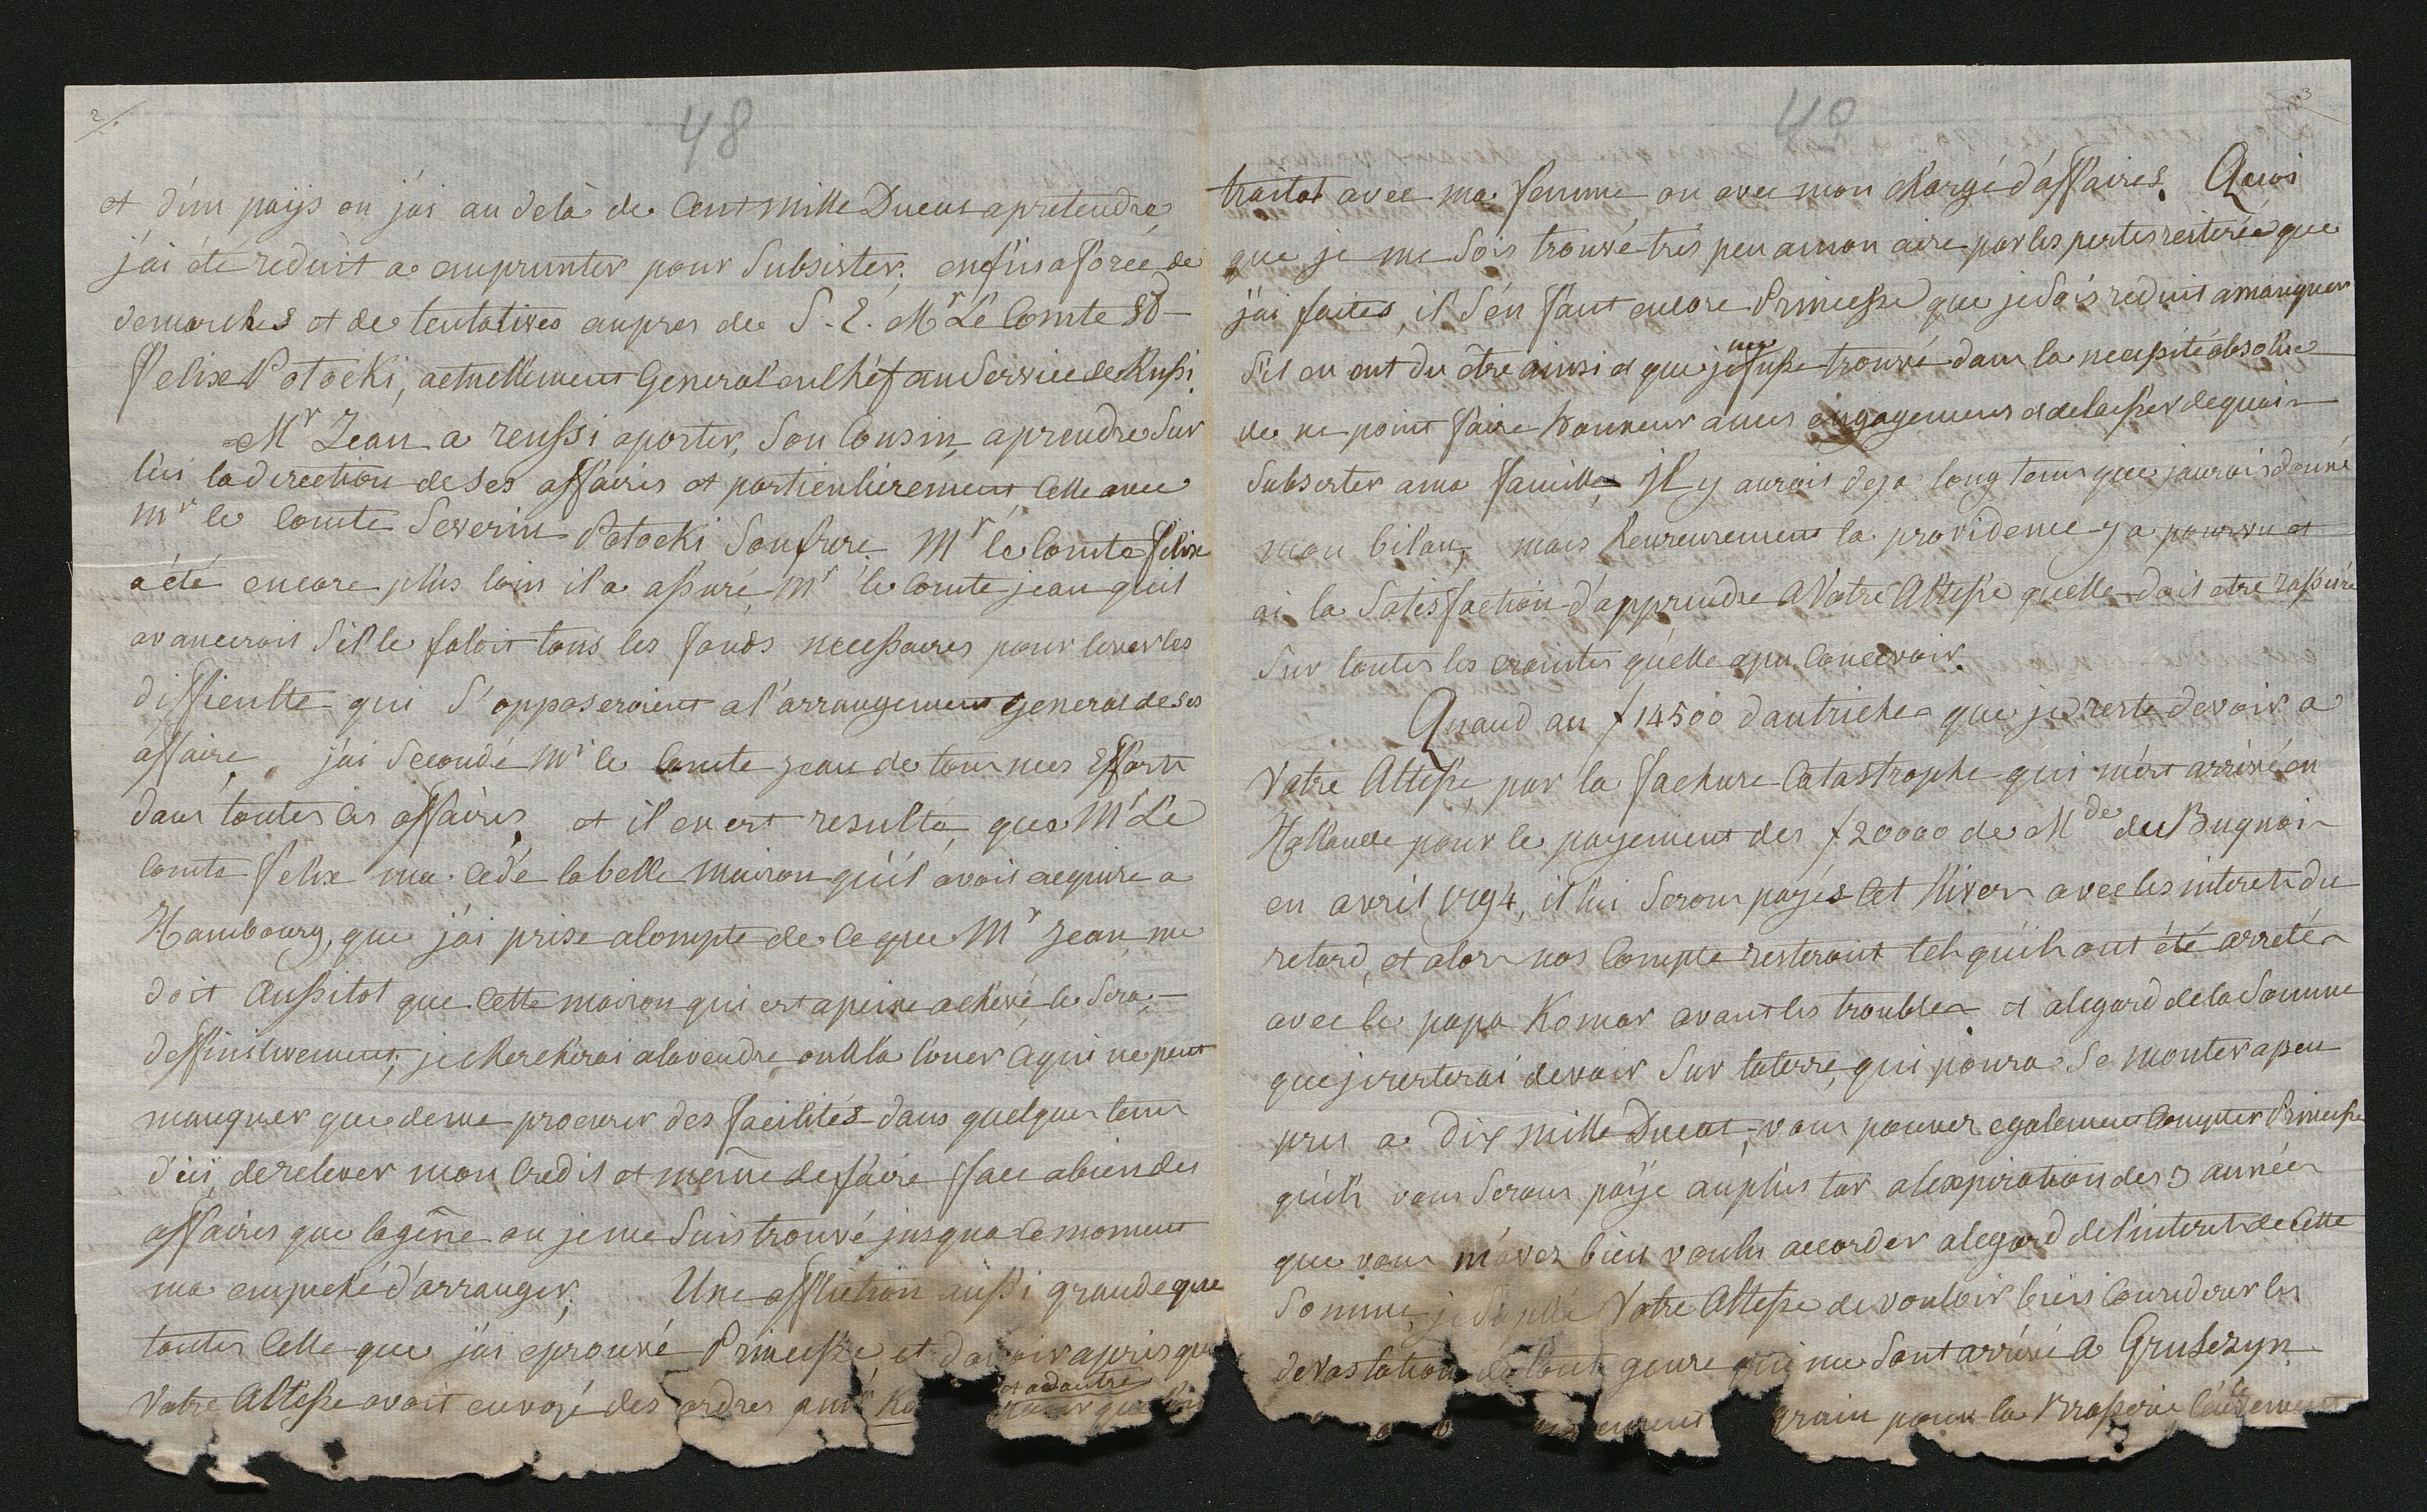 2/.
48
et d'un pays ou j'ai au dela de Cent mille Ducats a pretendre,
j'ai été reduit a emprunter pour Subsister; enfin a force de
demarches et de tentatives aupres de S. E. Mr Le Comte
Felix Potocki, actuellement General en Chef au Service de Russi.
Mr Jean a reussi a porter, Son Cousin, a prendre Sur
lui la direction de Ses affaires et particulierement Celle avec
Mr le Comte Severin Potocki Son frere Mr le Comte felix
a été encore plus loin il a assuré Mr le Comte jean quil
avanceroit S'il le faloit tous les fonds necessaires pour lever les
difficulte qui S'opposeroient a l'arrangement general de Ses
affaire. j'ai Secondé Mr le Comte jean de tous mes Efforts
dans toutes les affaires. et il en est resulté, que Mr Le
Comte Felix m'a Cedé la belle maison qu'il avoit acquise a
Hambourg, que j'ai prise a Compte de Ce que Mr Jean me
doit Aussitot que Cette maison qui est a peine achevé le Sera,
deffinitivement; je chercherai a la vendre ou A la louer Ce qui ne peut
manquer que de me procurer des facilités dans quelques tems
d'ici, de relever mon Credit et même de faire face a bien des
affaires que la gêne ou je me Suis trouvé jusqua ce moment
ma empeché d'arranger. Une affliction aussi grande que
toutes Celle que j'ai eprouvé Princesse, et d'avoir apris que
Votre Altesse avoit envoyé des ordres
et a d'autre
3
49
traitat avec ma femme ou avec mon chargé d'affaires. Quoi
que je me Sois trouvé tres peu a mon aise par les pertes reiterée que
j'ai faites, il S'en faut encore Princesse que je Sois reduit a manquer
S'il en ont du etre ainsi et que je
me
fusse trouvé dans la necessité absolue
de ne point faire honneur a mes engagemens et de laisser de quoi
Subsister a ma famille, Il y auroit deja long tems que j'aurois donné
mon bilan, mais heureusement la providence y a pourvu et
ai la Satisfaction d'apprendre A Votre Altesse quelle doit etre rassuré
Sur toutes les craintes qu'elle a pu Concevoir.
Quand au f 14500 dautriche que je reste devoir a
Votre Altesse, par la facheuse Catastrophe qui m'est arrivé en
Hollande pour le payement des f 20000 de Mde du Bugnoi
en avril 1794, il lui Seront payés Cet hiver avec les interets du
retard, et alors nos Compte resteront tels qu'ils ont été arreté
avec le papa Komar avant les troubles. et a legard de la Somme
que je resterai devoir Sur la terre, qui poura Se monter a peu
pres a Dix mille Ducat, vous pouvez egalement Compter Princesse
qu'ils vous Serons payé au plus tar a lexpiration des 3 années
que vous m'avez bien voulu accorder a legard de l'interet de Cette
Somme, je Suplie Votre Altesse de vouloir bien Considerer les
devastation de tout genre qui me Sont arrivé a Gruszczyn
grain pour la Brasserie